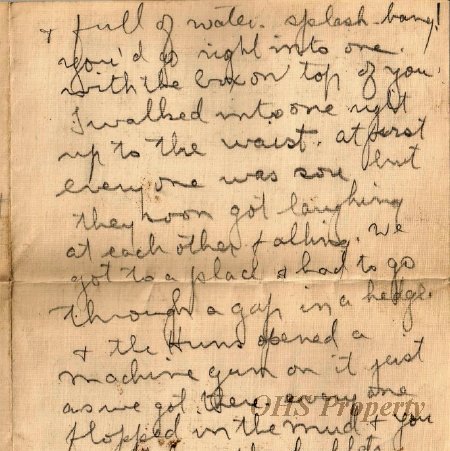 & full of water. splash-bang!
you'd go right into one.
with the box on top of you.
I walked into one right
up to the waist. at first
every one was sore but
they soon got laughing
at each other falling. We
got to a place & had to go
through a gap in a hedge.
& the Huns opened a
machine gun on it just
as we got there every one
flopped in the mud & you
OHS Property